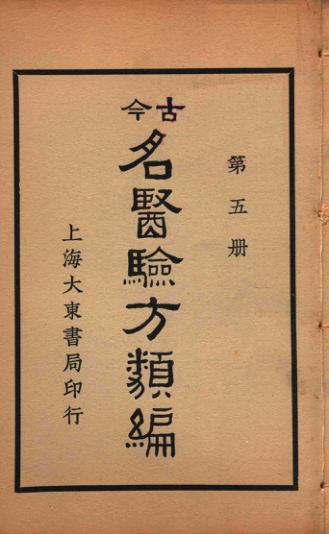 第五册
古今
名醫驗方類編
上海大東書局印行